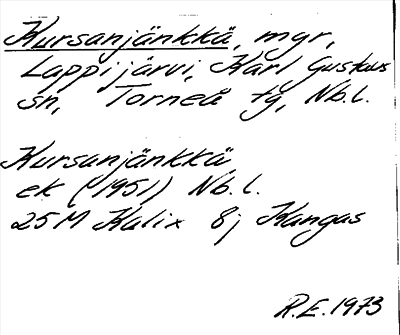 Kursanjänkkä, mgr,
Lappijärvi, Karl Gustavs
sn, Torneå tg, Nb.l.
Kursanjänkkä
ek (1951) Nb.l.
25M Kalix 8j Kangas
R.E. 1973